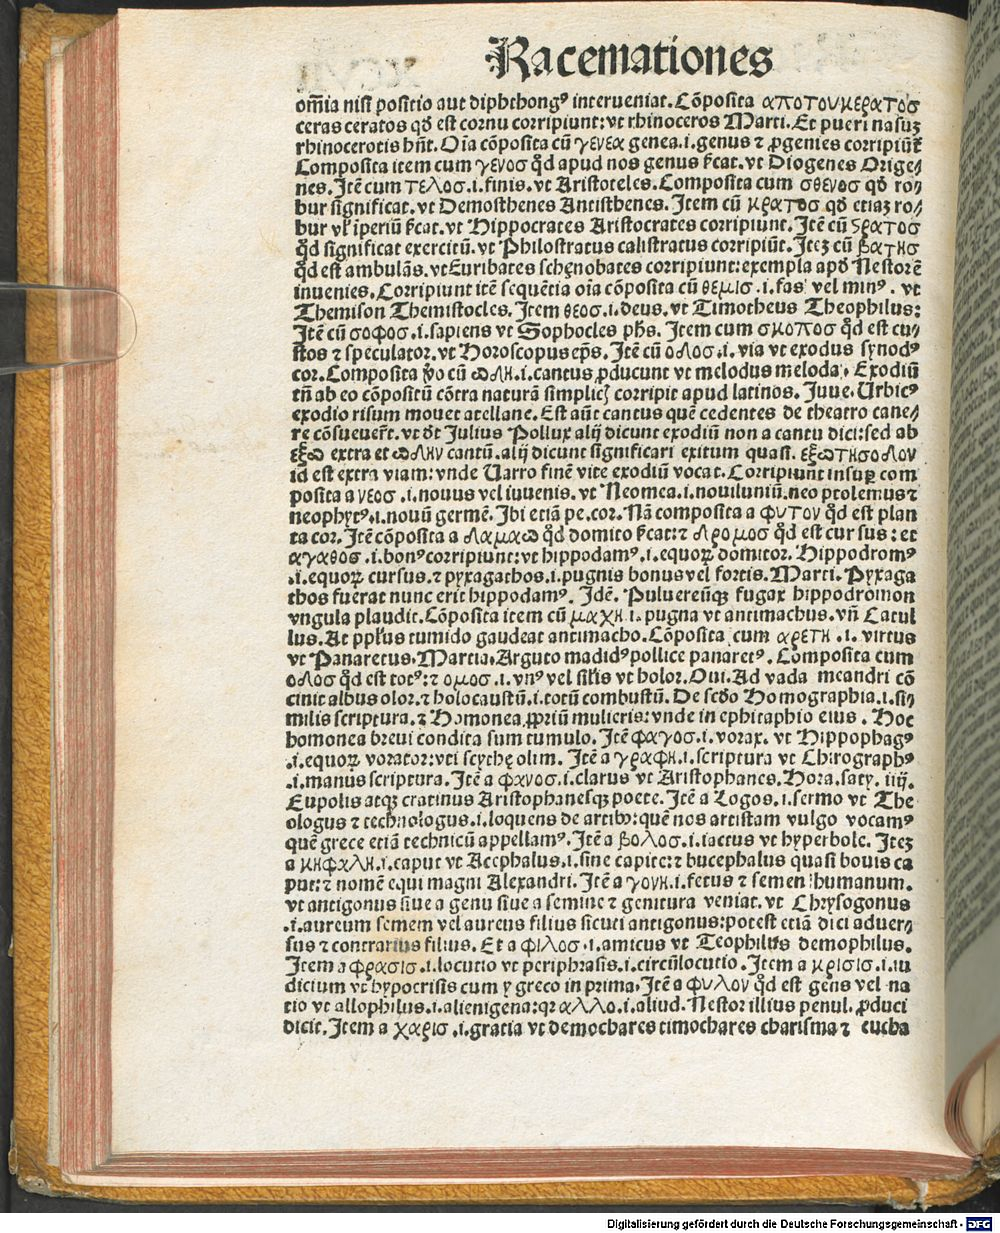 Racemationes
om̄ia nisi positio aut diphthongꝰ interueniat. Cōposita αποτουκερατοσ
ceras ceratos qđ est cornu corripiunt: vt rhinoceros Marti. Et pueri nasuꝫ
rhinocerotis hn̄t. Oīa cōposita cū γενεα genea.i.genus ⁊ ꝓgenies corripiūt
Composita item cum γενοσ qd̄ apud nos genus ſcat. vt Diogenes Orige⸗
nes. Itē cum τελοσ.i.finis. vt Aristoteles. Composita cum σθενοσ qđ ro⸗
bur significat. vt Demosthenes Antisthenes. Item cū κρατοσ qđ etiaꝫ ro⸗
bur vl̓ īperiū ſcat. vt Hippocrates Aristocrates corripiunt. Itē cū ςρατοσ
qd̄ significat exercitū. vt Philostratus calistratus corripiūt. Iteꝫ cū βατησ
qd̄ est ambulās. vt Euribates schęnobates corripiunt: exempla apđ Nestorē
inuenies. Corripiunt itē sequētia oīa cōposita cū θεμισ.i.fas vel minꝰ. vt
Themison Themistocles. Item θεοσ.i.deus. vt Timotheus Theophilus:
Itē cū σοφοσ.i.sapiens vt Sophocles ph̄s. Item cum σκοποσ qd̄ est cu⸗
stos ⁊ speculator. vt Horoscopus ep̄s. Itē cū οδοσ.i.via vt exodus synodꝰ
cor. Composita ꝟo cū ωδη.i.cantus ꝓducunt vt melodus meloda. Exodiū
tn̄ ab eo cōpositū cōtra naturā simplicꝭ corripit apud latinos. Juue. Urbicꝰ
exodio risum mouet atellane. Est aūt cantus quē cedentes de theatro cane⸗
re cōsueuer̄t. vt dt̄ Julius Pollux alij dicunt exodiū non a cantu dici: sed ab
εξω extra et ωδην cantū. alij dicunt significari exitum quasi. εξωτησοδου
id est extra viam: vnde Uarro finē vite exodiū vocat. Corripiunt insuꝑ com
posita a νεοσ.i.nouus vel iuuenis. vt Neomea.i.nouiluniū. neo ptolemus ⁊
neophytꝰ.i.nouū germē. Ibi etiā pe. cor. Nā composita a φυτον qd̄ est plan
ta cor. Itē cōposita a δαμαω qd̄ domito ſcat: ⁊ δρομοσ qd̄ est cursus: et
αγαθοσ.i.bonꝰ corripiunt: vt hippodamꝰ.i.equoꝝ domitor. Hippodromꝰ
.i.equoꝝ cursus. ⁊ pyxagathos.i.pugnis bonus vel fortis. Marti. Pyxaga
thos fuerat nunc erit hippodamꝰ. Idē. Puluereūqꝫ fugax hippodromon
vngula plaudit. Cōposita item cū μαχη.i.pugna vt antimachus. vn̄ Catul
lus. At ppl̓us tumido gaudeat antimacho. Cōposita cum αρετη.i.virtus
vt Panaretus. Martia. Arguto madidꝰ pollice panaretꝰ. Composita cum
ολοσ qd̄ est totꝰ: ⁊ ομοσ.i.vnꝰ vel sil̓is vt holor. Oui. Ad vada meandri cō
cinit albus olor. ⁊ holocaustū.i.totū combustū. De scd̄o Homographia.i.si⸗
milis scriptura. ⁊ Homonea ꝓpriū mulieris: vnde in ephitaphio eius. Hoc
homonea breui condita sum tumulo. Itē φαγοσ.i.vorax. vt Hippophagꝰ
.i.equoꝝ vorator: vti scythę olim. Itē a γραφη.i.scriptura vt Chirographꝰ
.i.manus scriptura. Itē a φανοσ.i.clarus vt Aristophanes. Hora. saty. iiij.
Eupolis atqꝫ cratinus Aristophanesqꝫ poete. Itē a Logos.i.sermo vt The
ologus ⁊ technologus.i.loquens de artib: quē nos artistam vulgo vocamꝰ
quē grece etiā technicū appellamꝰ. Itē a βολοσ.i.iactus vt hyperbole. Iteꝫ
a κηφαλη.i.caput vt Acephalus.i.sine capite: ⁊ bucephalus quasi bouis ca
put: ⁊ nomē equi magni Alexandri. Itē a γονη.i.fetus ⁊ semen humanum.
vt antigonus siue a genu siue a semine ⁊ genitura veniat. vt Chrysogonus
.i.aureum semem vel aureus filius sicuti antigonus: potest etiā dici aduer⸗
sus ⁊ contrarius filius. Et a φιλοσ.i.amicus vt Teophilus demophilus.
Item a φρασισ.i.locutio vt periphrasis.i.circūlocutio. Item a κρισισ.i.iu
dicium vt hypocrisis cum y greco in prima. Itē a φυλον qd̄ est gens vel na
tio vt allophilus.i.alienigena: qꝛ αλλο.i.aliud. Nestor illius penul. ꝓduci
dicit. Item a χαρισ.i.gratia vt demochares timochares charisma ⁊ eucha
Digitalisierung gefördert durch die Deutsche Forschungsgemeinschaft - DFG